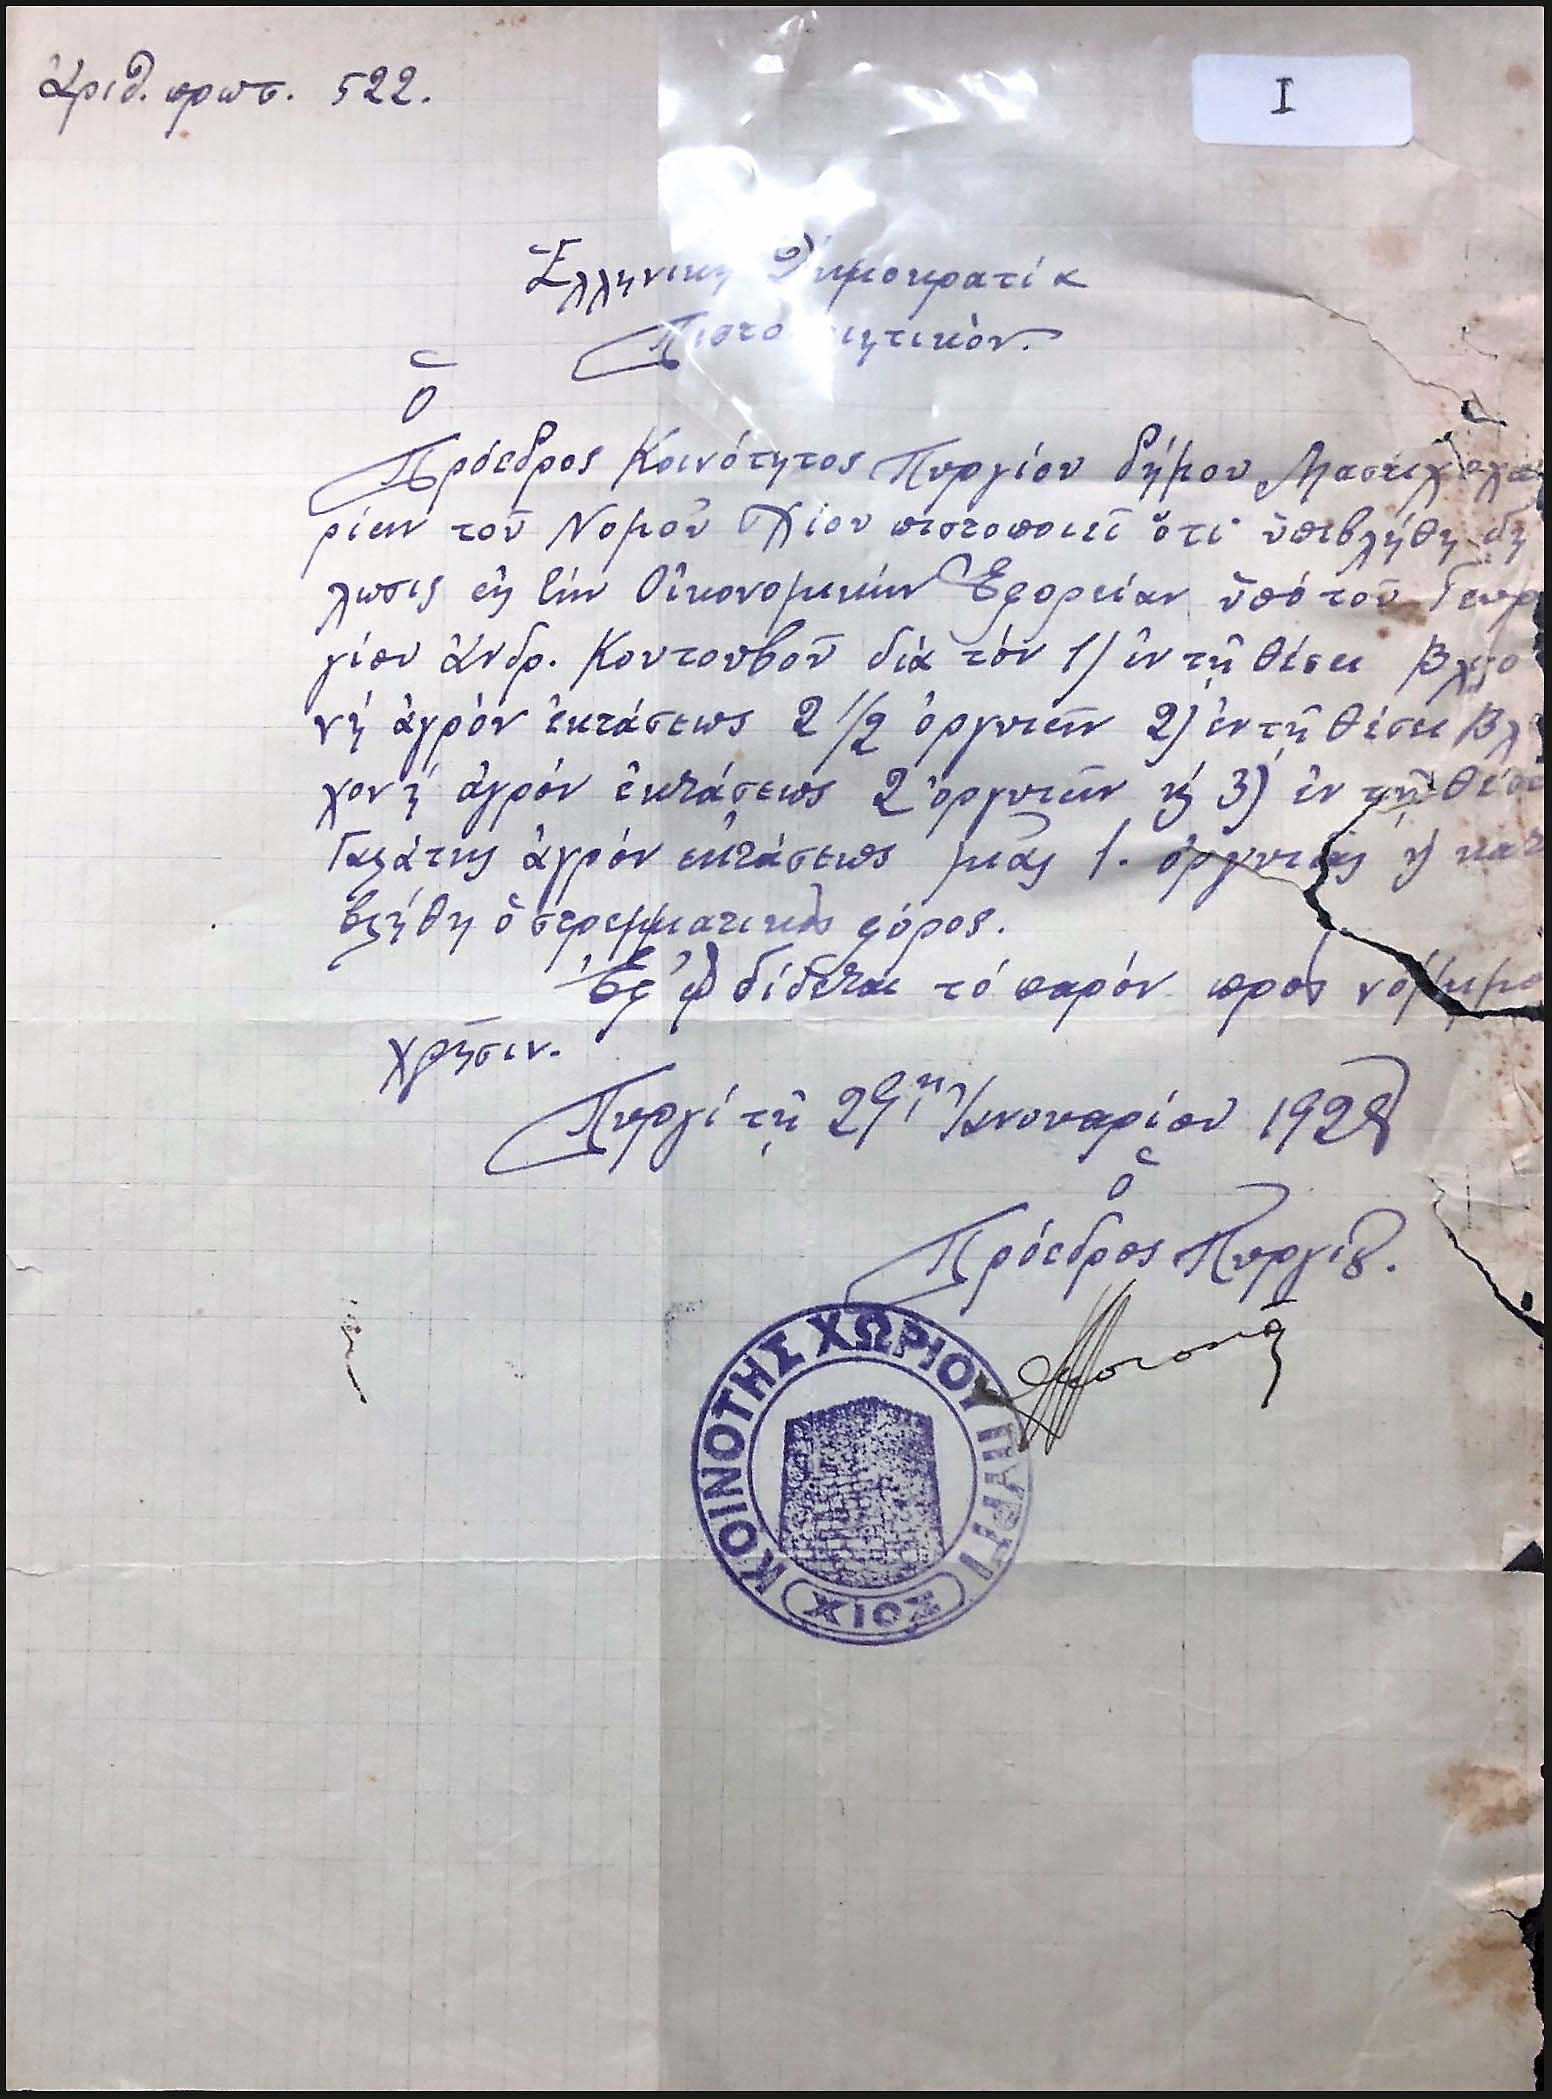 Ἀριθ. πρωτ. 522.
I
Ἑλληνικὴ Δημοκρατία
Πιστοποιητικὸν.
Ὁ
Πρόεδρος Κοινότητος Πυργίου δήμου Μαστιχοχω
ρίων τοῦ Νομοῦ Χίου πιστοποιεῖ ὅτι ὑπεβλήθη δή
λωσις εἰς τὴν Οἰκονομικὴν Ἐφορείαν ὑπό τοῦ Γεωρ
γίου Ἀνδρ. Κουτουβοῦ διά τόν 1) ἐν τῇ θέσει
νή ἀγρόν ἐκτάσεως 2 1/2 ὀργυιῶν 2) ἐν τῇ θέσει
χονή ἀγρόν ἐκτάσεως 2 ὀργυιῶν ϗ 3) ἐν τῇ θέσει
Γαλάτης ἀγρόν ἐκτάσεως μιᾶς 1. ὀργυιᾶς ϗ κατε
βλήθη ὁ στρεμματικὸς φόρος.
Ἐφ' ᾧ δίδεται τό παρόν πρός νόμιμο
χρῆσιν.
Πυργί τῇ 29ῃ Ἰανουαρίου 1928
Ὁ
Πρόεδρος Πυργίου.
ΚΟΙΝΟΤΗΣ ΧΩΡΙΟΥ ΠΥΡΓΙ
ΧΙΟΣ